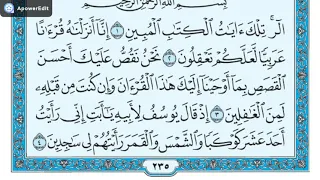 ApowerEdit
بِسْمِ اللَّهِ الرَّحْمَٰنِ الرَّحِيمِ
الٓر ۚ تِلْكَ ءَايَٰتُ ٱلْكِتَٰبِ ٱلْمُبِينِ ١ إِنَّآ أَنزَلْنَٰهُ قُرْءَٰنًا
عَرَبِيًّا لَّعَلَّكُمْ تَعْقِلُونَ ٢ نَحْنُ نَقُصُّ عَلَيْكَ أَحْسَنَ
ٱلْقَصَصِ بِمَآ أَوْحَيْنَآ إِلَيْكَ هَٰذَا ٱلْقُرْءَانَ وَإِن كُنتَ مِن قَبْلِهِۦ
لَمِنَ ٱلْغَٰفِلِينَ ٣ إِذْ قَالَ يُوسُفُ لِأَبِيهِ يَٰٓأَبَتِ إِنِّى رَأَيْتُ
أَحَدَ عَشَرَ كَوْكَبًا وَٱلشَّمْسَ وَٱلْقَمَرَ رَأَيْتُهُمْ لِى سَٰجِدِينَ ٤
٢٣٥